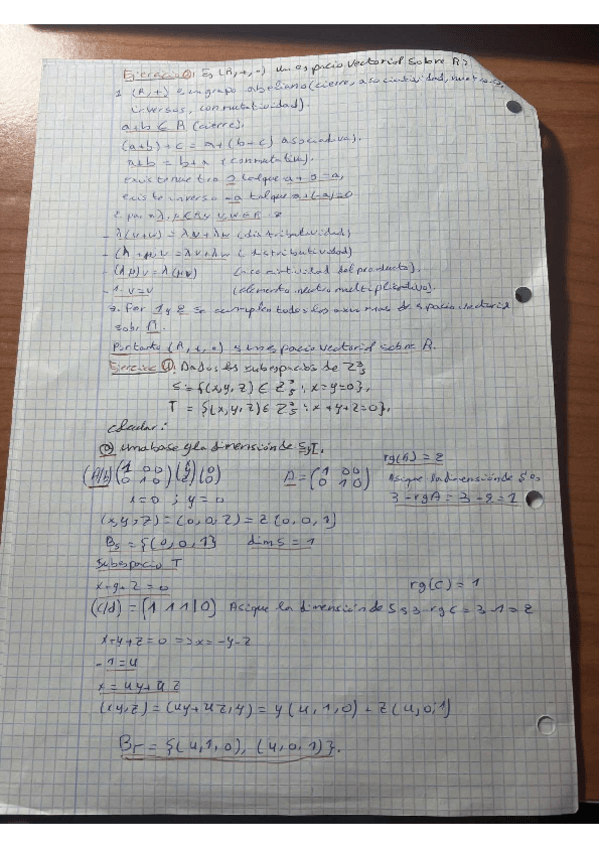 Ejercicio : Es (R, +, ·) un espacio vectorial sobre R?
1. (R,+) es un grupo abeliano (cierre, asociatividad,
inversos, conmutatividad).
a+b ∈ R (cierre).
(a+b)+c = a+(b+c) asociativa).
a+b = b+a (conmutativa).
existe neutro 0 tal que a+0=a,
existe inverso -a tal que a+(-a)=0
2. para λ, μ ∈ R y
- λ(v+u) = λv+λu (distributividad)
- (λ+μ)v = λv+λv (distributividad)
- (λμ)v = λ(μv) (asociatividad del producto).
- 1·v=v (elemento neutro multiplicativo).
3. Por 1 y 2 se cumplen todos los axiomas de espacio vectorial
sobre R.
Por tanto (R, +, ·) es un espacio vectorial sobre R.
Ejercicio 4. Dados los subespacios de Z³₅
S = {(x,y,z) ∈ Z³₅ ; x=y=0},
T = {(x,y,z) ∈ Z³₅ ; x+y+z=0},
calcular:
a) una base y la dimensión de S, T.
rg(A) = 2
(A/b) (1 0 0) (x) (0)
(0 1 0) (y) (0)
A = (1 0 0)
(0 1 0)
Asi que la dimensión de S es
3-rgA = 3-2=1
x=0 ; y=0
(x,y,z) = (0,0,z) = z(0,0,1)
Bs = {(0,0,1)} dim S = 1
Subespacio T
x+y+z=0 rg(C) = 1
(C/d) = (1 1 1 | 0) Asi que la dimensión de S es 3-rgC = 3-1=2
x+y+z=0 => x=-y-z
-1=4
x=4y+4z
(x,y,z) = (4y+4z,y) = y(4,1,0) + z(4,0,1)
BT = {(4,1,0), (4,0,1)}.